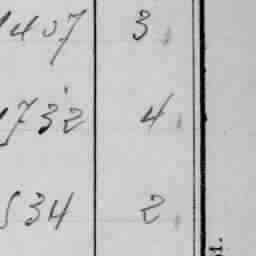 1407 3
1732 4
534 2